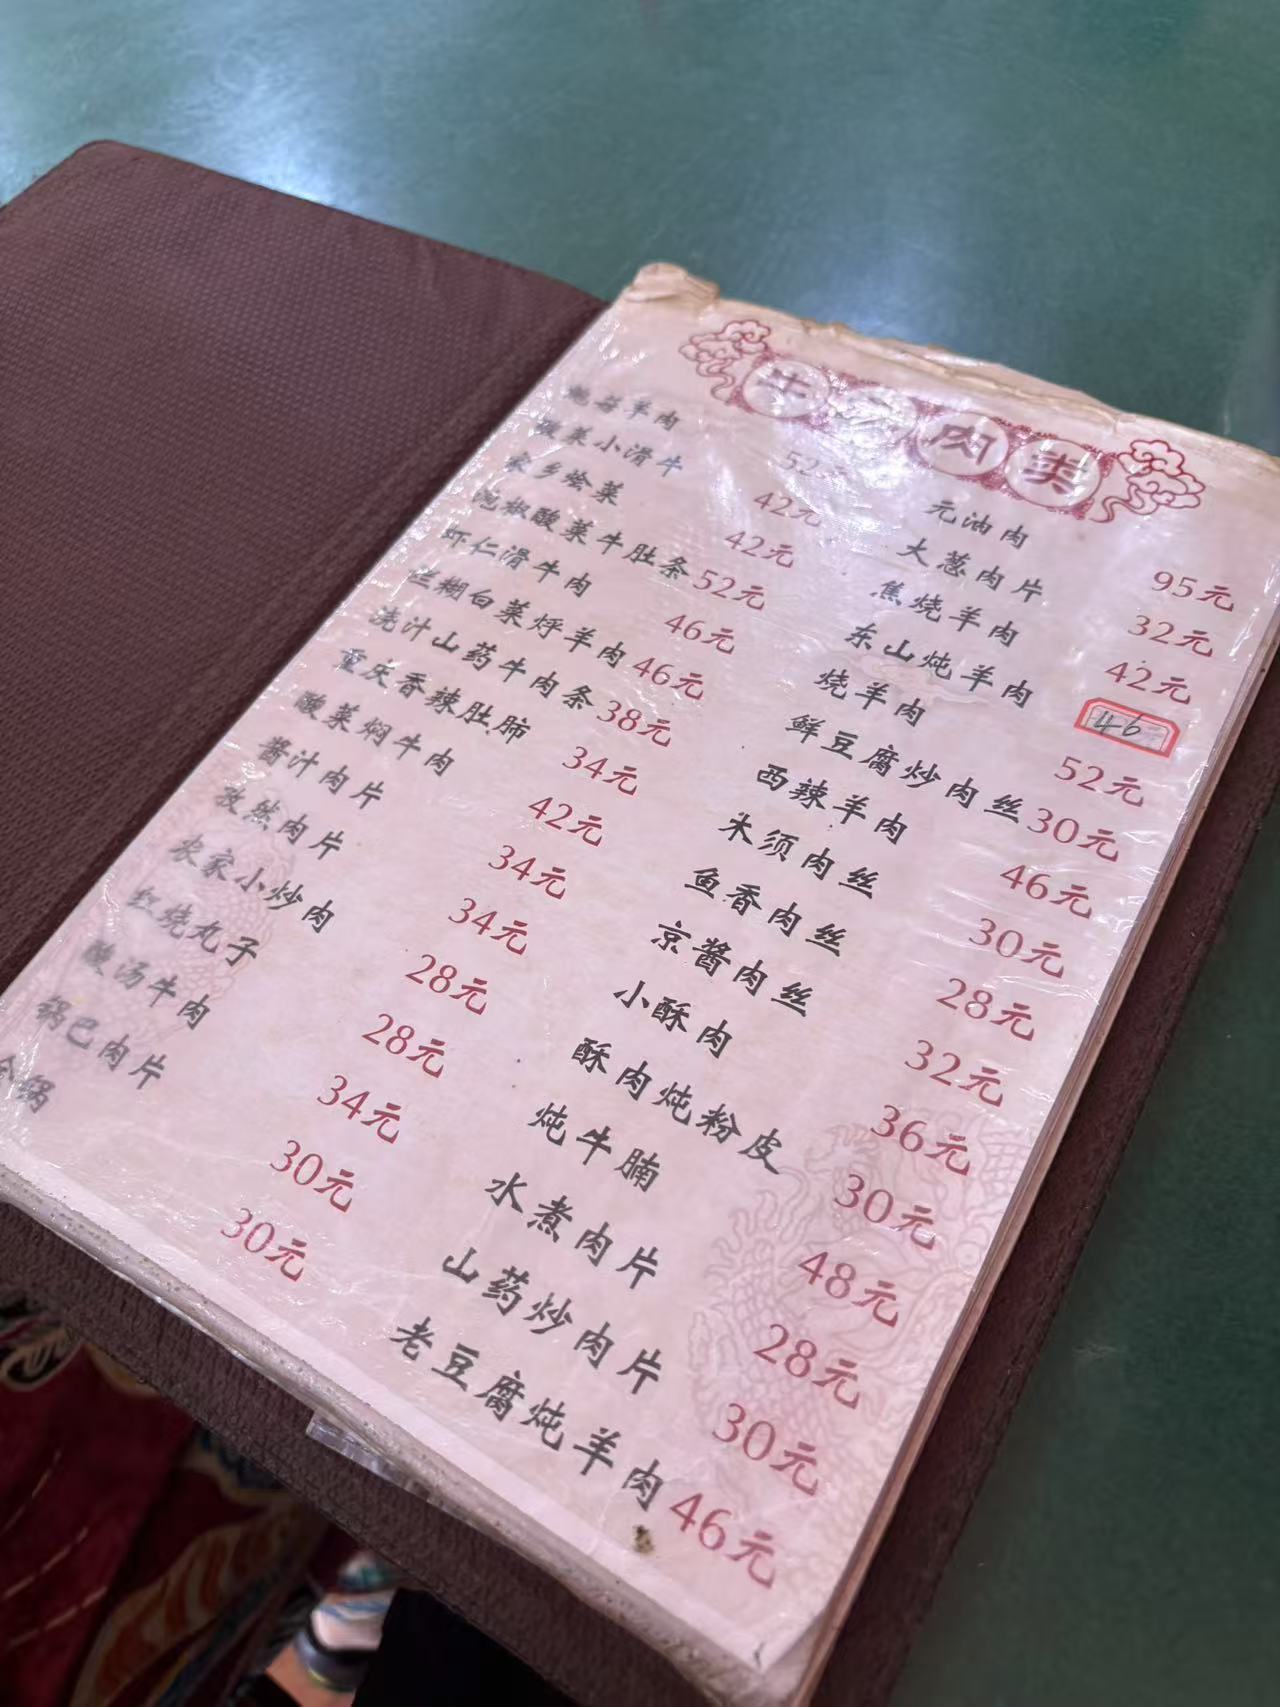 牛 肉类
羊肉 52元
酸菜小滑牛 42元
家乡烩菜 42元
泡椒酸菜牛肚条 52元
虾仁滑牛肉 46元
糊白菜烀羊肉 46元
浇汁山药牛肉条 38元
重庆香辣肚肺 34元
酸菜焖牛肉 42元
酱汁肉片 34元
孜然肉片 34元
农家小炒肉 28元
红烧丸子 28元
酸汤牛肉 34元
锅巴肉片 30元
锅 30元
元油肉 95元
大葱肉片 32元
焦烧羊肉 42元
东山炖羊肉 46
烧羊肉 52元
鲜豆腐炒肉丝 30元
西辣羊肉 46元
木须肉丝 30元
鱼香肉丝 28元
京酱肉丝 32元
小酥肉 36元
酥肉炖粉皮 30元
炖牛腩 48元
水煮肉片 28元
山药炒肉片 30元
老豆腐炖羊肉 46元